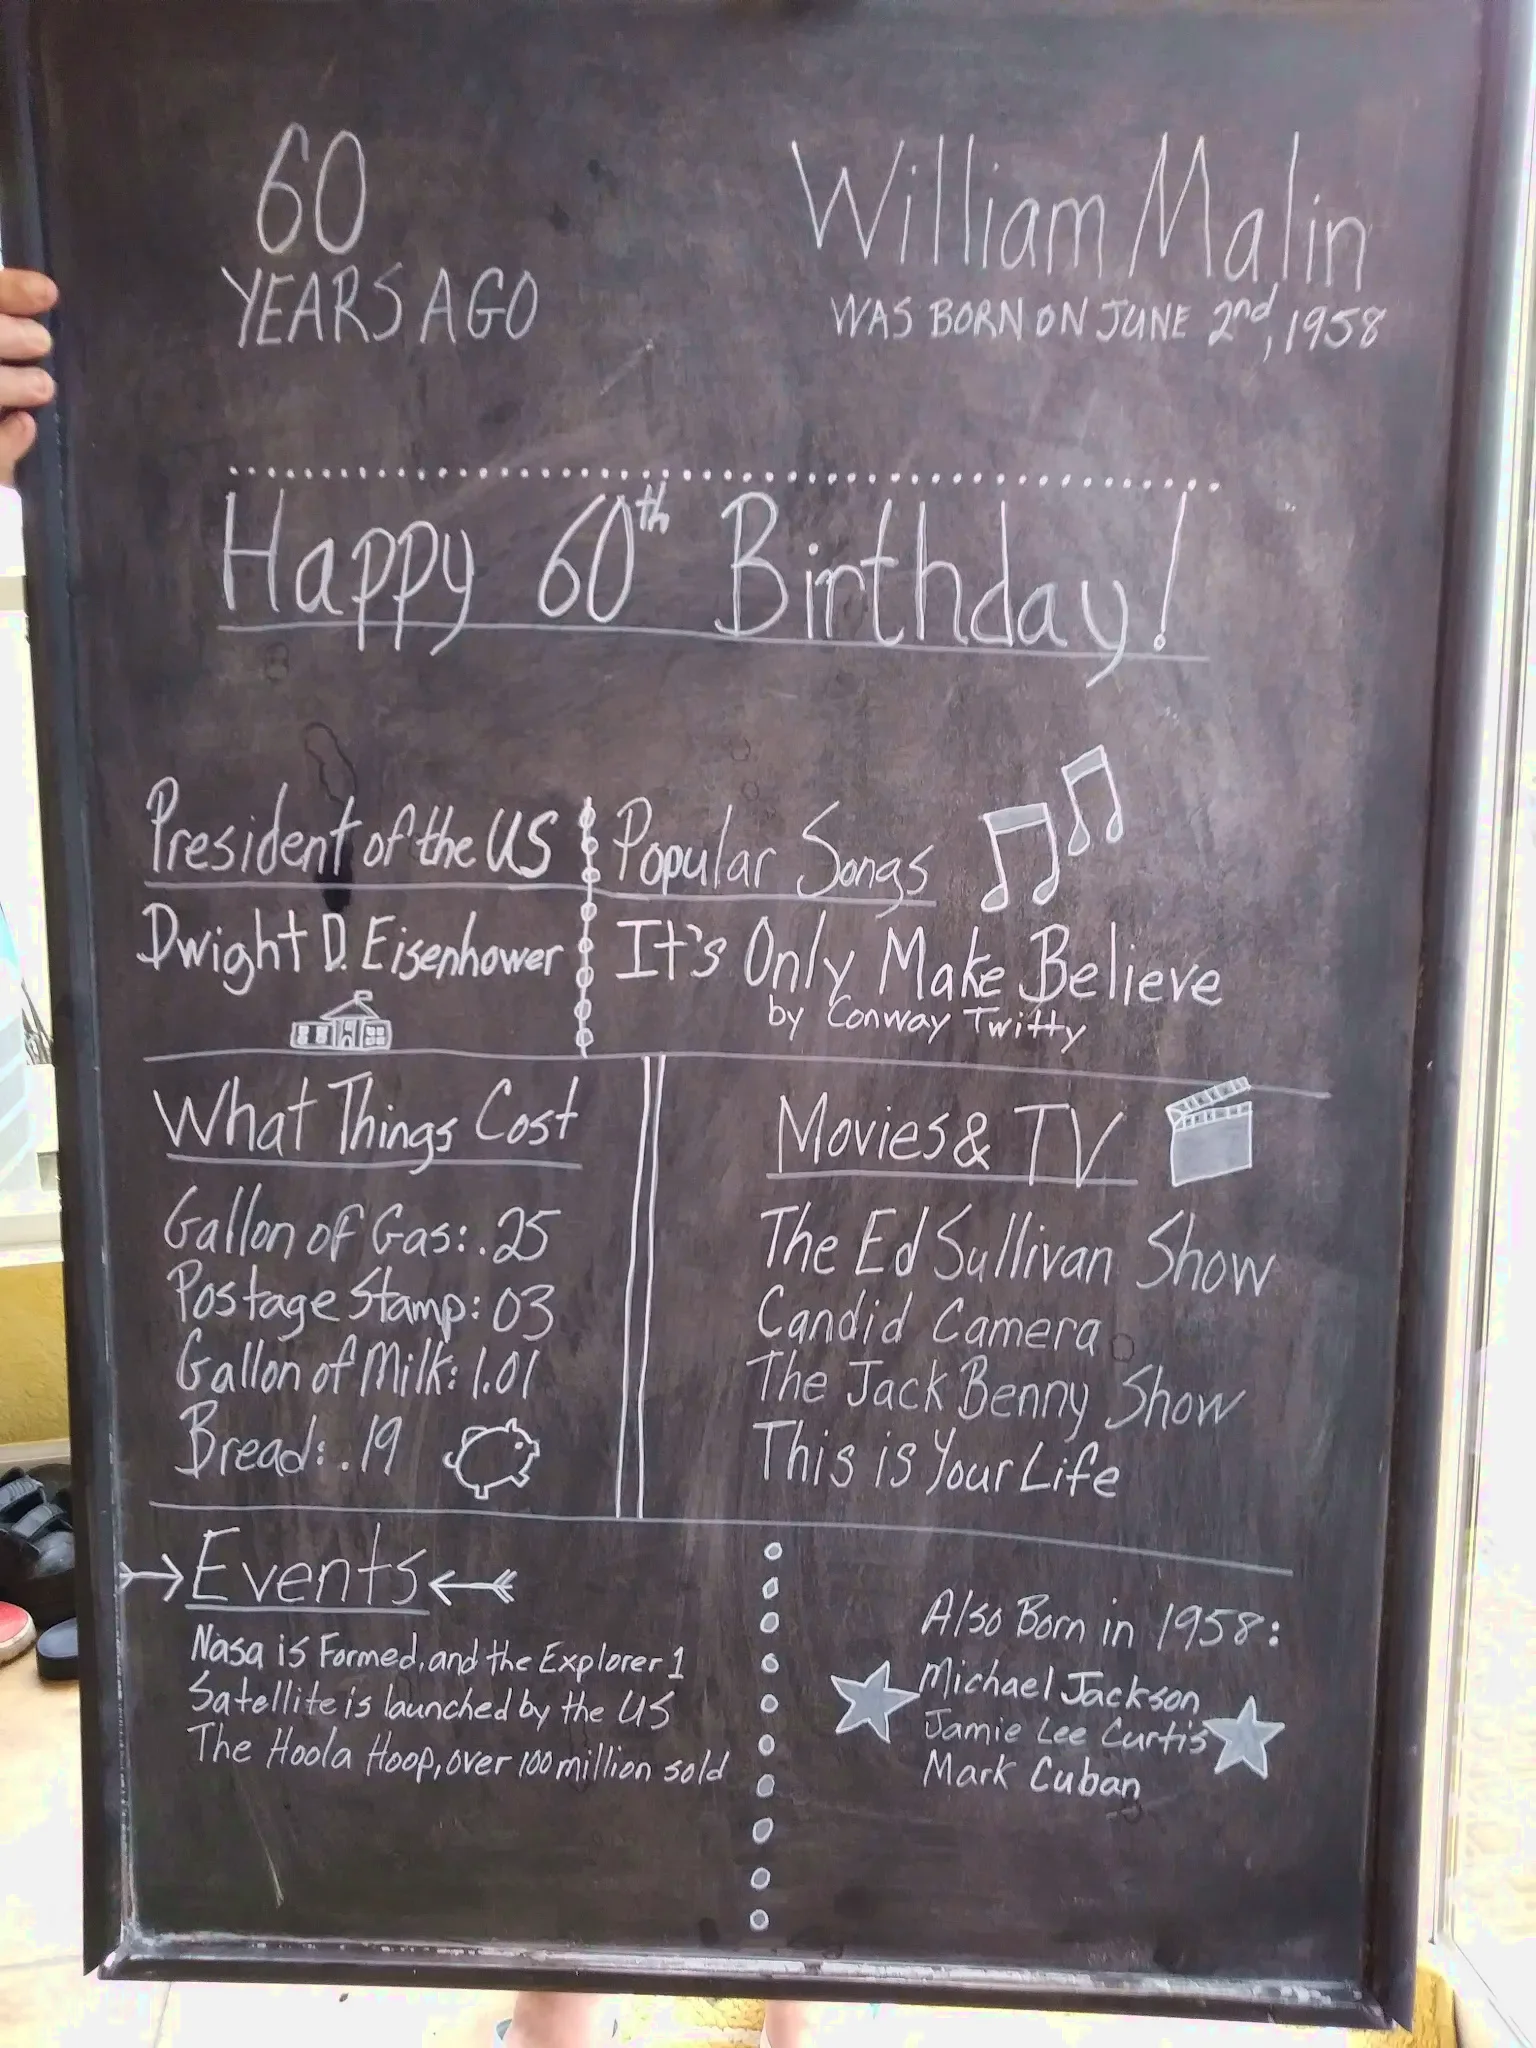 60
YEARS AGO
William Malin
WAS BORN ON JUNE 2nd, 1958
Happy 60th Birthday!
President of the US
Dwight D. Eisenhower
Popular Songs
It's Only Make Believe
by Conway Twitty
What Things Cost
Gallon of Gas: .25
Postage Stamp: 03
Gallon of Milk: 1.01
Bread: .19
Movies & TV
The Ed Sullivan Show
Candid Camera
The Jack Benny Show
This is Your Life
Events
Nasa is Formed, and the Explorer 1
Satellite is launched by the US
The Hoola Hoop, over 100 million sold
Also Born in 1958:
Michael Jackson
Jamie Lee Curtis
Mark Cuban